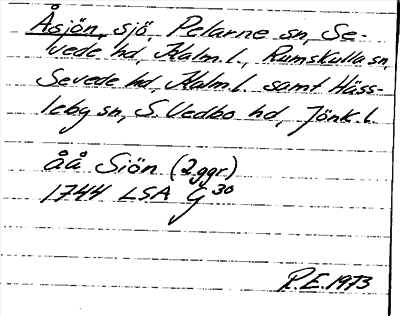 Åsjön, sjö, Pelarne sn, Se-
vede hd, Kalm.l., Rumskulla sn,
Sevede hd, Kalm.l. samt Häss-
lebg sn, S. Vedbo hd, Jönk.l.
åå Siön (2 ggr)
1744 LSA G 30
P.E. 1973